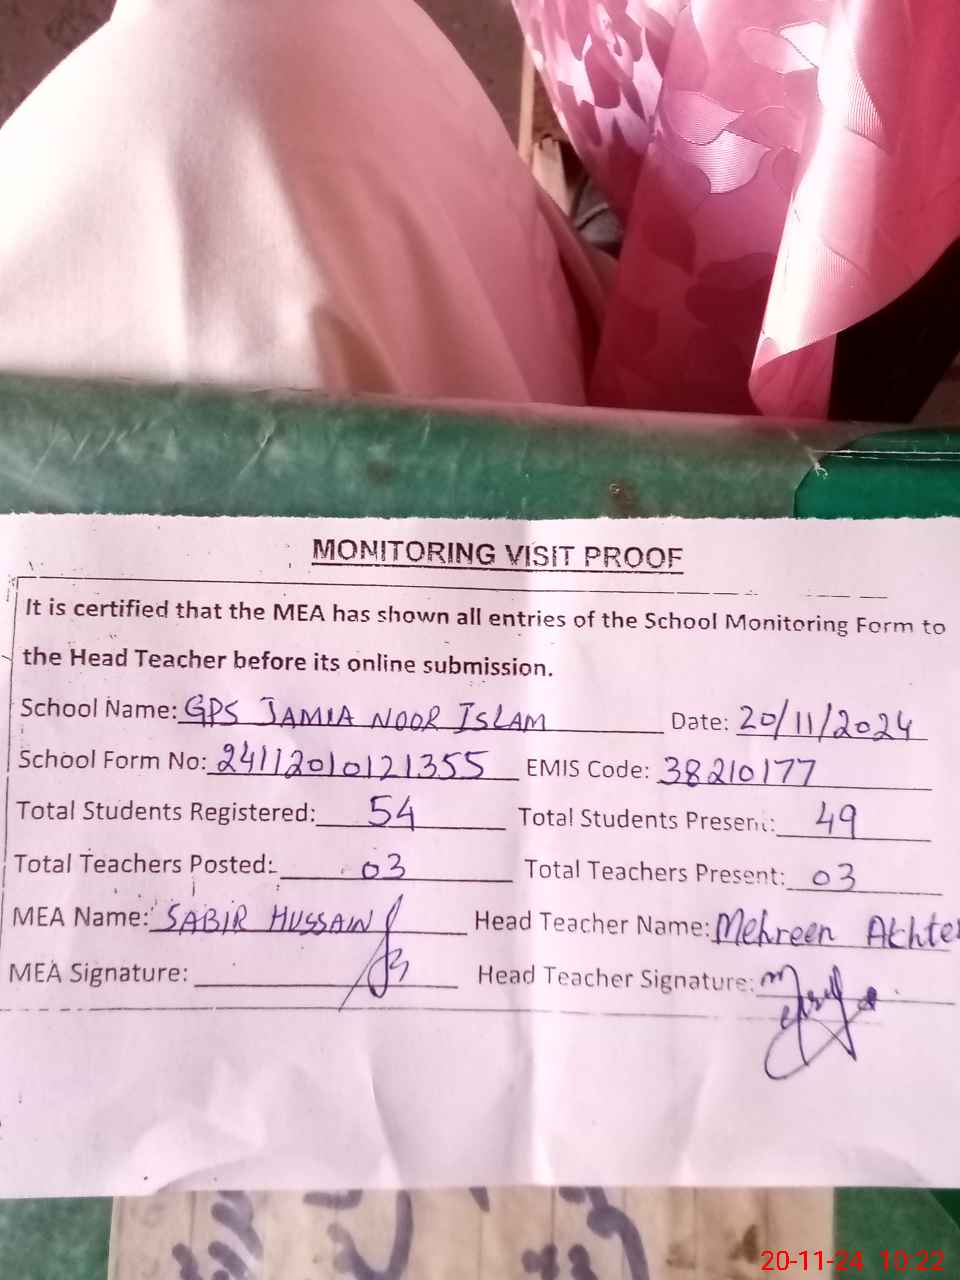 MONITORING VISIT PROOF
It is certified that the MEA has shown all entries of the School Monitoring Form to
the Head Teacher before its online submission.
School Name: GPS JAMIA NOOR ISLAM Date: 20/11/2024
School Form No: 24112010121355 EMIS Code: 38210177
Total Students Registered: 54 Total Students Present: 49
Total Teachers Posted: 03 Total Teachers Present: 03
MEA Name: SABIR HUSSAIN Head Teacher Name: Mehreen Akhter
MEA Signature: Head Teacher Signature:
20-11-24 10:22